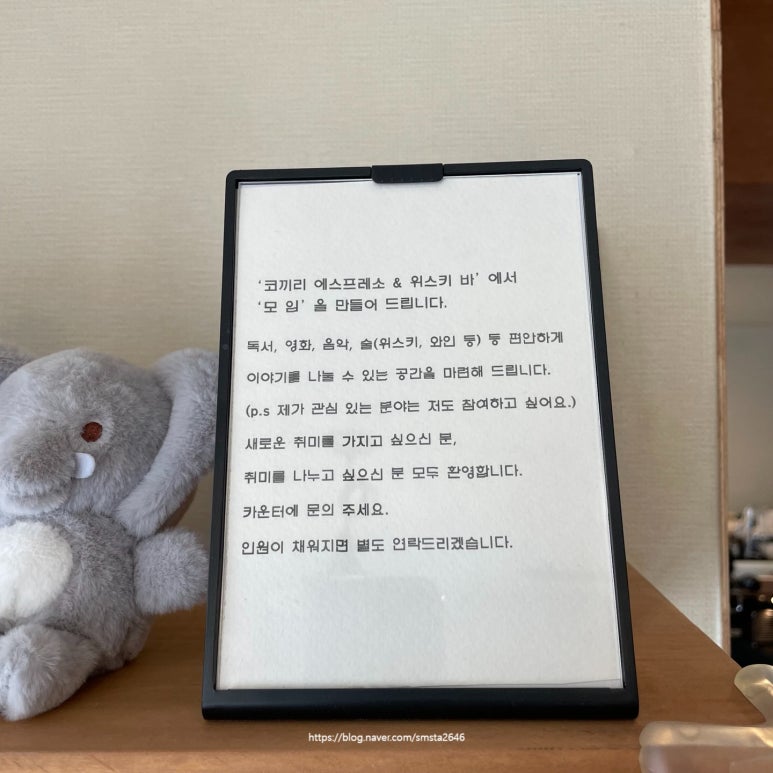 '코끼리 에스프레소 & 위스키 바' 에서
'모 임' 을 만들어 드립니다.
독서, 영화, 음악, 술(위스키, 와인 등) 등 편안하게
이야기를 나눌 수 있는 공간을 마련해 드립니다.
(p.s 제가 관심 있는 분야는 저도 참여하고 싶어요.)
새로운 취미를 가지고 싶으신 분,
취미를 나누고 싶으신 분 모두 환영합니다.
카운터에 문의 주세요.
인원이 채워지면 별도 연락드리겠습니다.
https://blog.naver.com/smsta2646